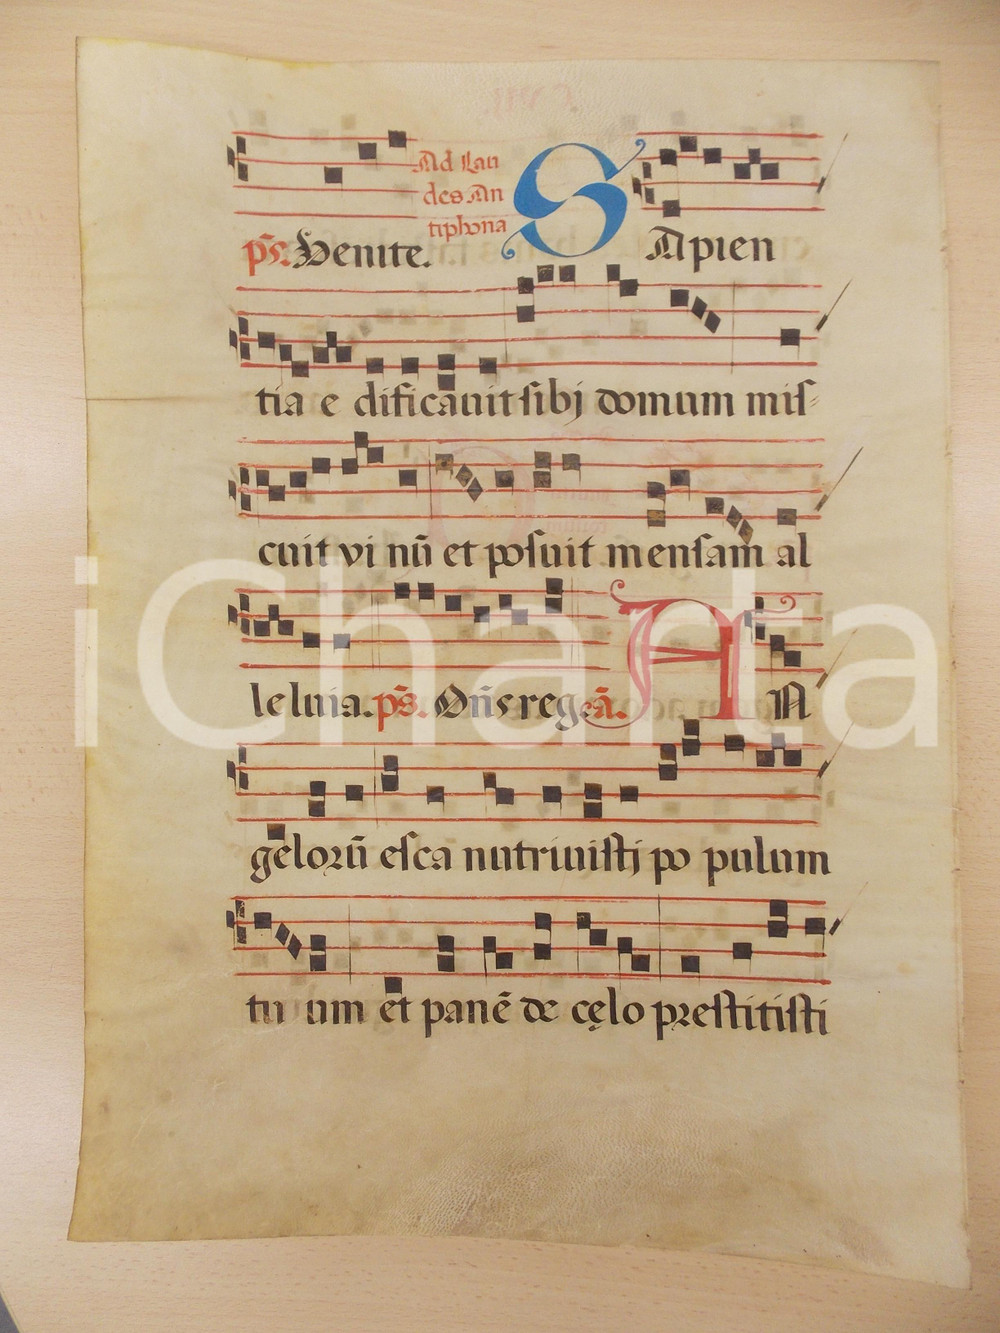 Ad Lau
des An
tiphona
ps. Venite. SApien
tia e dificauit sibj domum mis-
cuit vi nū et posuit mensam al
le luia. ps. Dn̄s reg. ā. AN
gelorū esca nutriuisti po pulum
tu um et panē de cęlo prestitisti
iCharta